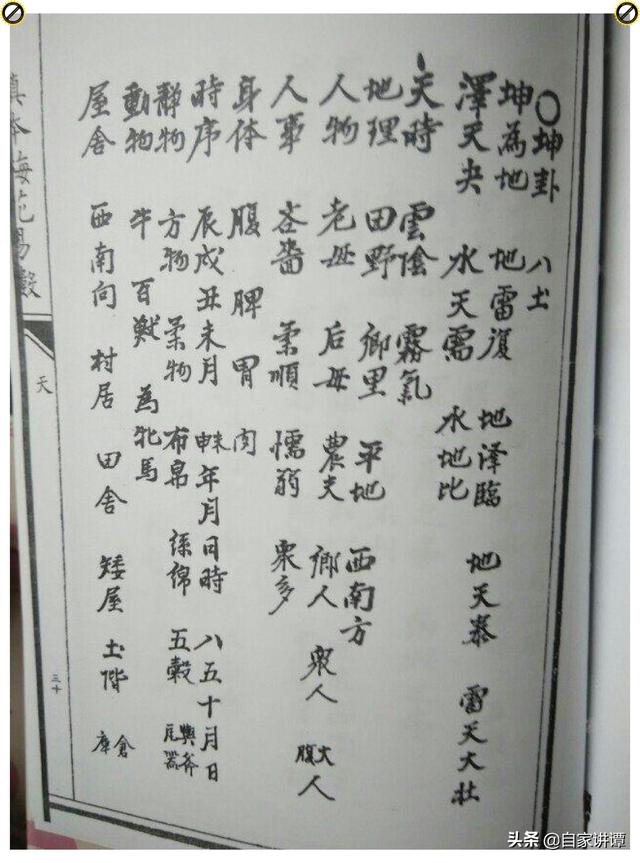 ○坤卦 八土
坤為地 地雷復 地泽臨 地天泰 雷天大壮
澤天夬 水天需 水地比
天時 雲陰 霧氣
地理 田野 鄉里 平地 西南方
人物 老母 后母 農夫 鄉人 衆人 大腹人
人事 吝嗇 柔順 懦弱 衆多
身体 腹 脾 胃 肉
時序 辰戌丑未月 未申年月日時 八五十月日
静物 方物 柔物 布帛 絲綿 五穀 輿斧 瓦器
動物 牛 百獸 為牝馬
屋舍 西南向 村居 田舍 矮屋 土階 倉庫
真本梅花易數
天
三十
头条 @自家讲谭